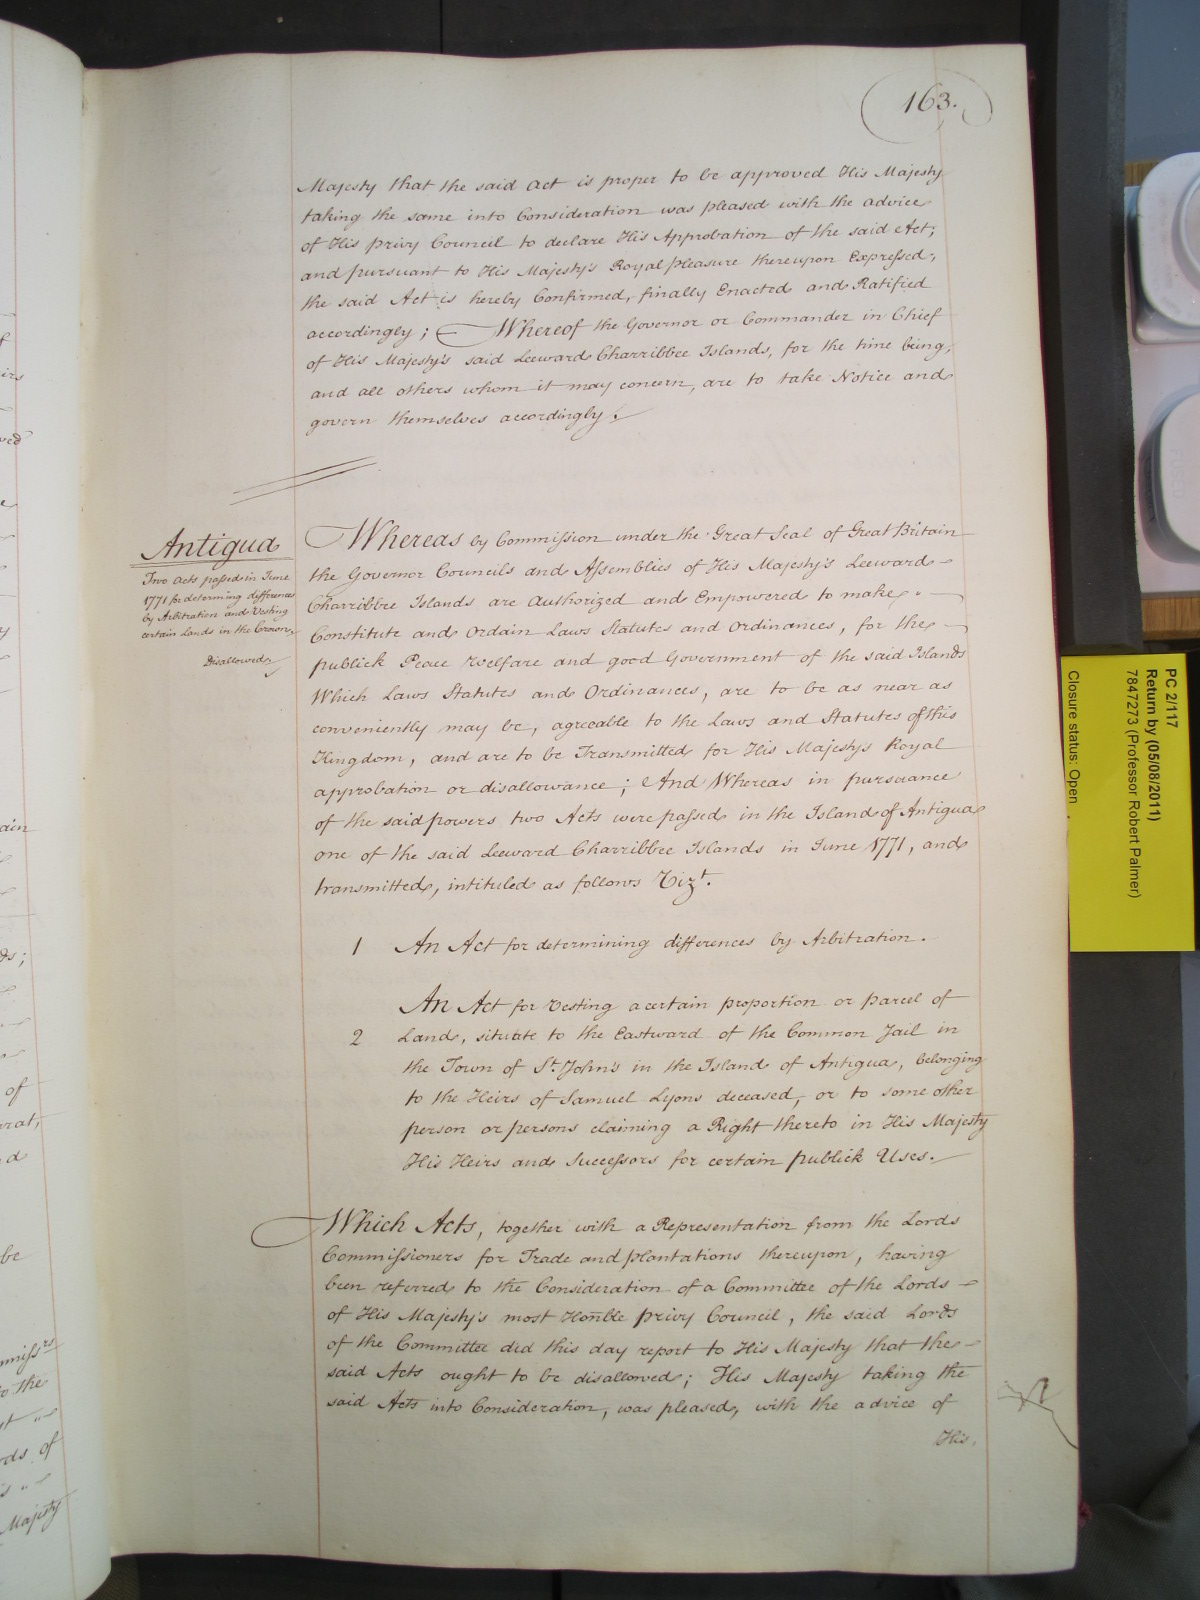 163.
Majesty that the said Act is proper to be approved His Majesty
taking the same into Consideration was pleased with the advice
of His privy Council to declare His Approbation of the said Act;
and pursuant to His Majesty's Royal pleasure thereupon Expressed,
the said Act is hereby Confirmed, finally Enacted and Ratified
accordingly; Whereof the Governor or Commander in Chief
of His Majesty's said Leeward Charribbee Islands, for the time being,
and all others whom it may concern, are to take Notice and
govern themselves accordingly.
Antigua
Two Acts passed in June
1771 for determing differences
by Arbitration and Vesting
certain Lands in the Crown,
Disallowed,
Whereas by Commission under the Great Seal of Great Britain
the Governor Councils and Assemblies of His Majesty's Leeward
Charribbee Islands are Authorized and Empowered to make,
Constitute and Ordain Laws Statutes and Ordinances, for the
publick Peace Welfare and good Government of the said Islands
Which Laws Statutes and Ordinances, are to be as near as
conveniently may be, agreeable to the Laws and Statutes of this
Kingdom, and are to be Transmitted for His Majesty's Royal
approbation or disallowance; And Whereas in pursuance
of the said powers two Acts were passed in the Island of Antigua
one of the said Leeward Charribbee Islands in June 1771, and
transmitted, intituled as follows Vizt.
1 An Act for determining differences by Arbitration.
An Act for Vesting a certain proportion or parcel of
2 Land, situate to the Eastward of the Common Jail in
the Town of St. John's in the Island of Antigua, belonging
to the Heirs of Samuel Lyons deceased, or to some other
person or persons claiming a Right thereto in His Majesty
His Heirs and Successors for certain publick Uses.
Which Acts, together with a Representation from the Lords
Commissioners for Trade and plantations thereupon, having
been referred to the Consideration of a Committee of the Lords
of His Majesty's most Honble privy Council, the said Lords
of the Committee did this day report to His Majesty that the
said Acts ought to be disallowed; His Majesty taking the
said Acts into Consideration, was pleased, with the advice of
His
PC 2/117
Return by (05/08/2011)
7847273 (Professor Robert Palmer)
Closure status: Open
ain
of
be
to the
rds of
Majesty